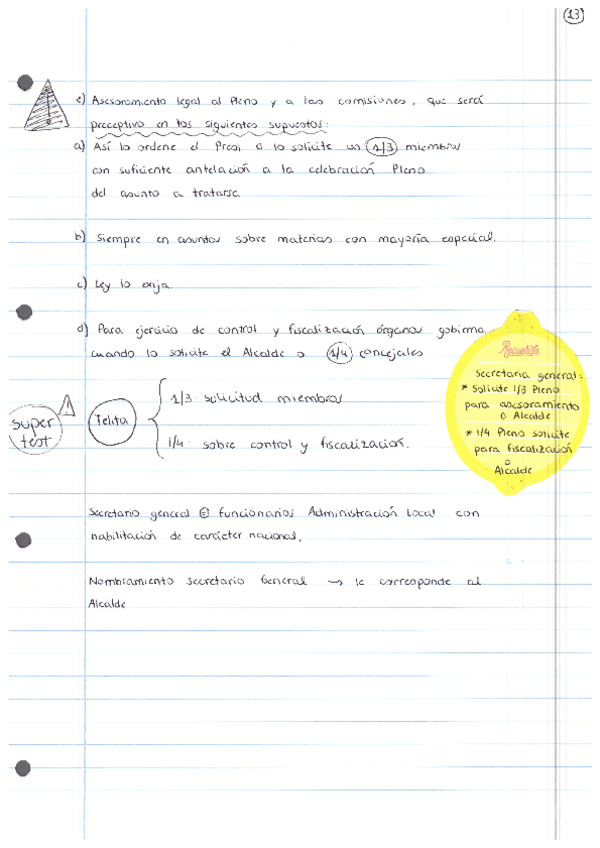 13
e) Asesoramiento legal al Pleno y a las comisiones, que será
preceptivo en los siguientes supuestos:
a) Así lo ordene el Presi o lo solicite un 1/3 miembros
con suficiente antelación a la celebración Pleno
del asunto a tratarse.
b) Siempre en asuntos sobre materias con mayoría especial.
c) Ley lo exija
d) Para ejercicio de control y fiscalización órganos gobierno.
cuando lo solicite el Alcalde o 1/4 concejales
Recuerda
Secretaria general:
* Solicite 1/3 Pleno
para asesoramiento
o Alcalde
* 1/4 Pleno solicite
para fiscalización
o
Alcalde
super
test
Telita
1/3 solicitud miembros
1/4 sobre control y fiscalización.
Secretario general funcionarios Administración Local con
habilitación de carácter nacional.
Nombramiento secretario General → le corresponde al
Alcalde